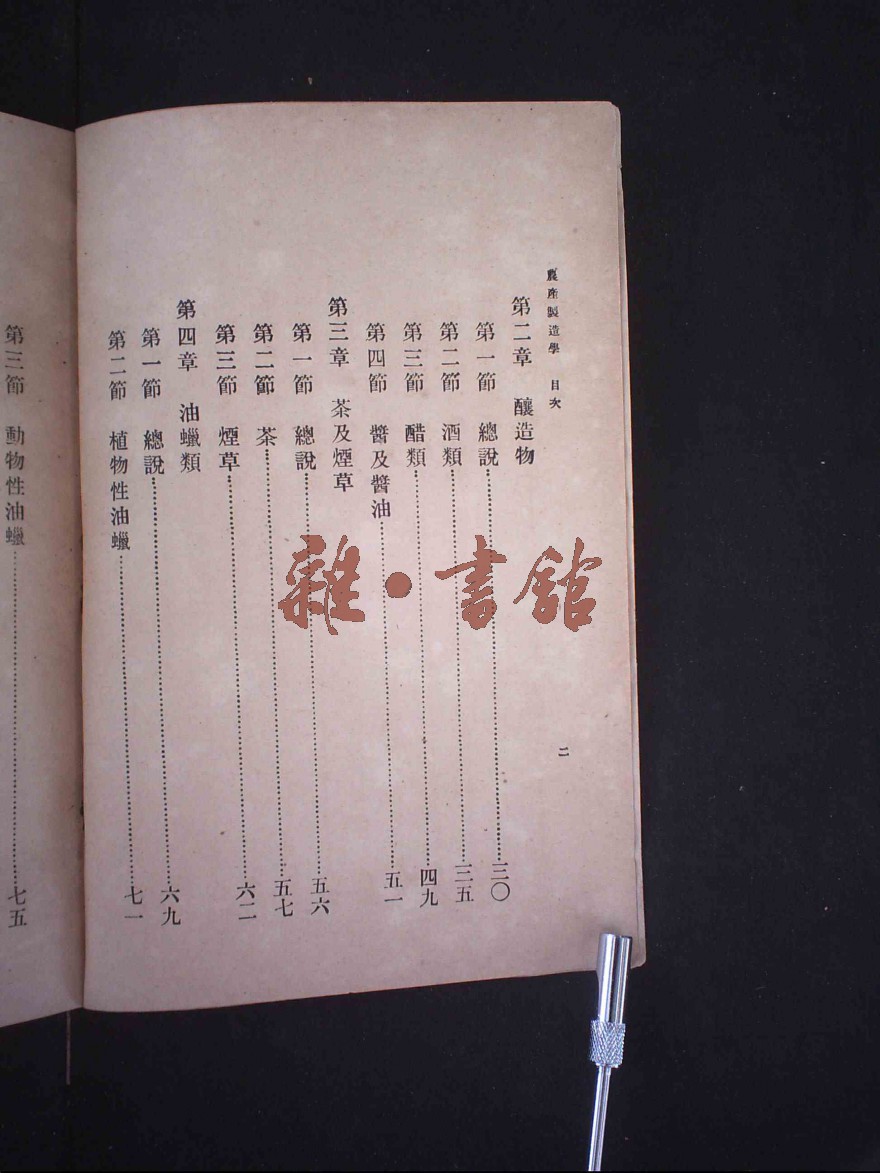 農產製造學 目次
二
第二章 釀造物
第一節 總說……三〇
第二節 酒類……三五
第三節 醋類……四九
第四節 醬及醬油……五一
第三章 茶及煙草
第一節 總說……五六
第二節 茶……五七
第三節 煙草……六二
第四章 油蠟類
第一節 總說……六九
第二節 植物性油蠟……七一
第三節 動物性油蠟……七五
雜·書舘